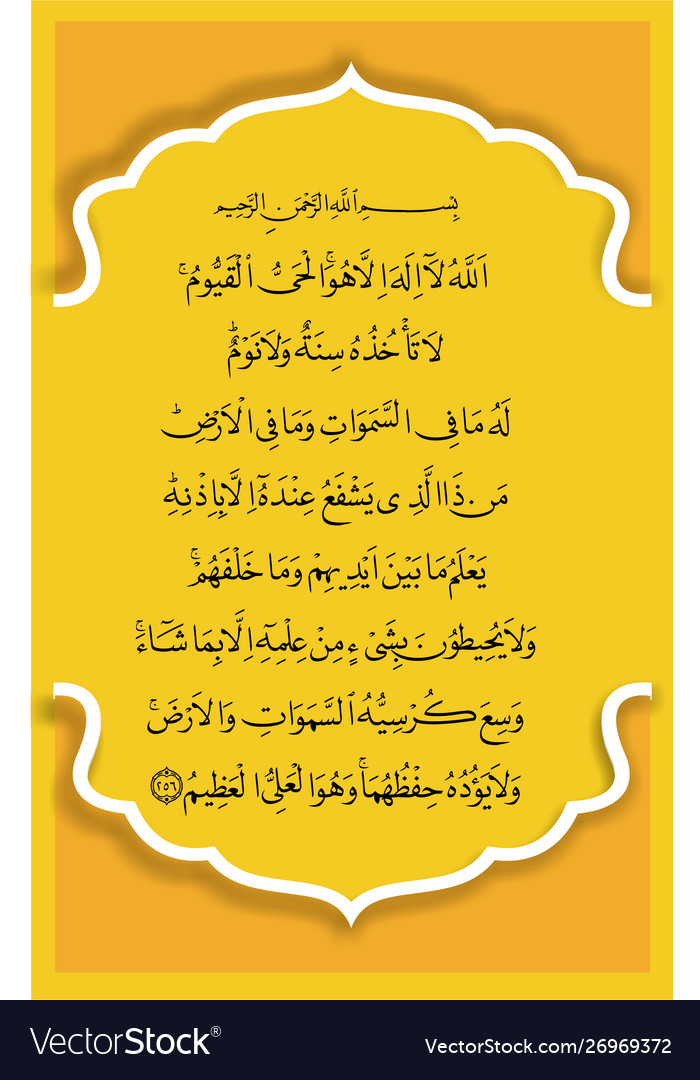 بِسْمِ اللَّهِ الرَّحْمَنِ الرَّحِيمِ
اَللَّهُ لَآ اِلَهَ اِلَّا هُوَۚ اَلْحَىُّ ٱلْقَيُّومُۚ
لَا تَأْخُذُهُ سِنَةٌ وَلَا نَوْمٌۗ
لَهُ مَا فِى السَّمَوَاتِ وَمَا فِى الْاَرْضِۗ
مَن ذَا الَّذِى يَشْفَعُ عِنْدَهُٓ اِلَّا بِاِذْنِهِۗ
يَعْلَمُ مَا بَيْنَ اَيْدِيهِمْ وَمَا خَلْفَهُمْۚ
وَلَا يُحِيطُونَ بِشَىْءٍ مِنْ عِلْمِهِٓ اِلَّا بِمَا شَآءَۚ
وَسِعَ كُرْسِيُّهُ ٱلسَّمَوَاتِ وَالاَرْضَۚ
وَلَا يَؤُدُهُ حِفْظُهُمَاۚ وَهُوَ الْعَلِىُّ الْعَظِيمُ ٢٥٦
VectorStock®
VectorStock.com/26969372